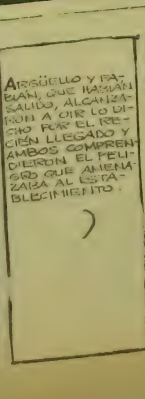 ARGÜELLO Y FA-
BIÁN, QUE HABÍAN
SALIDO, ALCANZA-
RON A OIR LO DI-
CHO POR EL RE-
CIÉN LLEGADO Y
AMBOS COMPREN-
DIERON EL PELI-
GRO QUE AMENA-
ZABA AL ESTA-
BLECIMIENTO.